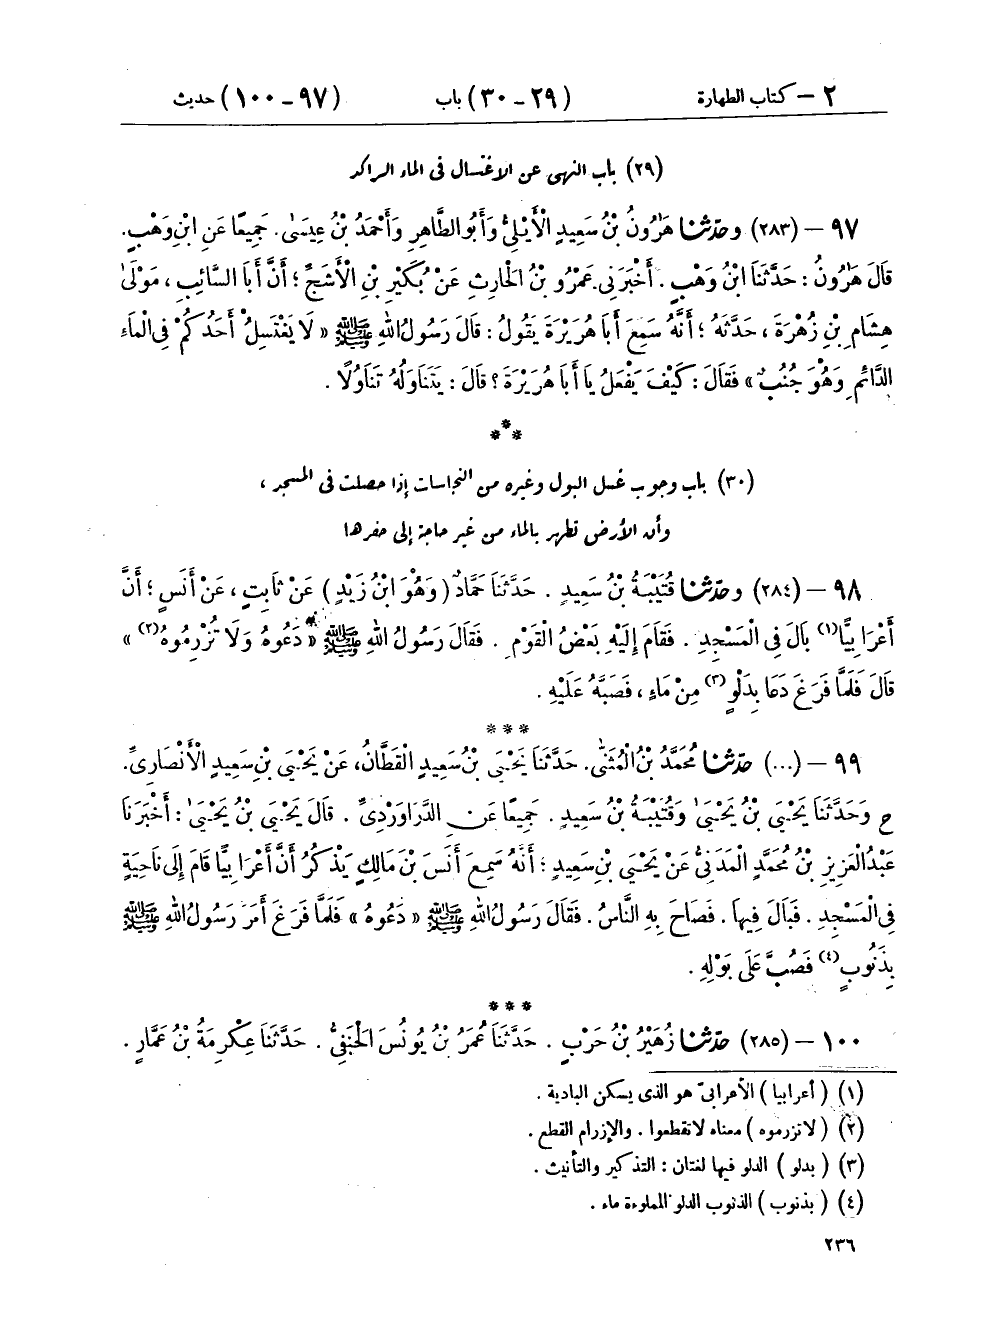 ٢ – كتاب الطهارة (٢٩ - ٣٠) باب (٩٧ - ١٠٠) حديث
(٢٩) باب النهى عن الاغتسال فى الماء الراكد
٩٧ – (٢٨٣) وحدّثنا هَٰرُونُ بْنُ سَعِيدٍ الْأَيْلِىُّ وَأَبُو الطَّاهِرِ وَأَحْمَدُ بْنُ عِيسَىٰ. جَمِيعًا عَنِ ابْنِ وَهْبٍ.
قَالَ هَٰرُونُ : حَدَّثَنَا ابْنُ وَهْبٍ . أَخْبَرَنِى عَمْرُو بْنُ الْحَارِثِ عَنْ بُكَيْرِ بْنِ الْأَشَجِّ ؛ أَنَّ أَبَا السَّائِبِ ، مَوْلَىٰ
هِشَامِ بْنِ زُهْرَةَ ، حَدَّثَهُ ؛ أَنَّهُ سَمِعَ أَبَا هُرَيْرَةَ يَقُولُ : قَالَ رَسُولُ اللهِ ﷺ « لَا يَغْتَسِلْ أَحَدُكُمْ فِى الْمَاءِ
الدَّائِمِ وَهُوَ جُنُبٌ » فَقَالَ : كَيْفَ يَفْعَلُ يَا أَبَا هُرَيْرَةَ ؟ قَالَ : يَتَنَاوَلُهُ تَنَاوُلًا .
***
(٣٠) باب وجوب غسل البول وغيره من النجاسات إذا حصلت فى المسجد ،
وأن الأرض تطهر بالماء من غير حاجة إلى حفرها
٩٨ – (٢٨٤) وحدّثنا قُتَيْبَةُ بْنُ سَعِيدٍ . حَدَّثَنَا حَمَّادٌ ( وَهُوَ ابْنُ زَيْدٍ ) عَنْ ثَابِتٍ ، عَنْ أَنَسٍ ؛ أَنَّ
أَعْرَابِيًّا(١) بَالَ فِى الْمَسْجِدِ . فَقَامَ إِلَيْهِ بَعْضُ الْقَوْمِ . فَقَالَ رَسُولُ اللهِ ﷺ « دَعُوهُ وَلَا تُزْرِمُوهُ(٢) »
قَالَ فَلَمَّا فَرَغَ دَعَا بِدَلْوٍ(٣) مِنْ مَاءٍ ، فَصَبَّهُ عَلَيْهِ .
***
٩٩ – (...) حدّثنا مُحَمَّدُ بْنُ الْمُثَنَّى. حَدَّثَنَا يَحْيَى بْنُ سَعِيدٍ الْقَطَّانُ، عَنْ يَحْيَى بْنِ سَعِيدٍ الْأَنْصَارِىِّ.
ح وَحَدَّثَنَا يَحْيَىٰ بْنُ يَحْيَىٰ وَقُتَيْبَةُ بْنُ سَعِيدٍ . جَمِيعًا عَنِ الدَّرَاوَرْدِىِّ . قَالَ يَحْيَىٰ بْنُ يَحْيَىٰ : أَخْبَرَنَا
عَبْدُ الْعَزِيزِ بْنُ مُحَمَّدٍ الْمَدَنِىُّ عَنْ يَحْيَىٰ بْنِ سَعِيدٍ ؛ أَنَّهُ سَمِعَ أَنَسَ بْنَ مَالِكٍ يَذْكُرُ أَنَّ أَعْرَابِيًّا قَامَ إِلَىٰ نَاحِيَةٍ
فِى الْمَسْجِدِ . فَبَالَ فِيهَا . فَصَاحَ بِهِ النَّاسُ . فَقَالَ رَسُولُ اللهِ ﷺ « دَعُوهُ » فَلَمَّا فَرَغَ أَمَرَ رَسُولُ اللهِ ﷺ
بِذَنُوبٍ(٤) فَصُبَّ عَلَى بَوْلِهِ .
***
١٠٠ – (٢٨٥) حدّثنا زُهَيْرُ بْنُ حَرْبٍ . حَدَّثَنَا عُمَرُ بْنُ يُونُسَ الْحَنَفِىُّ . حَدَّثَنَا عِكْرِمَةُ بْنُ عَمَّارٍ .
(١) ( أعرابيا ) الأعرابىّ هو الذى يسكن البادية .
(٢) ( لاتزرموه ) معناه لاتقطعوا . والإزرام القطع .
(٣) ( بدلو ) الدلو فيها لغتان : التذكير والتأنيث .
(٤) ( بذنوب ) الذنوب الدلو المملوءة ماء .
٢٣٦